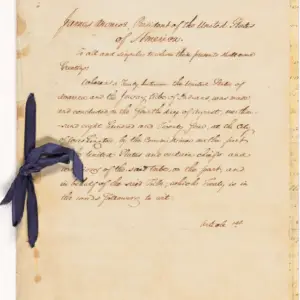 James Monroe, President of the United States
of America.
To all and singular to whom these presents shall come
Greeting:
Whereas a Treaty between the United States of
America and the Ioway tribe of Indians was made
and concluded on the fourth day of August, one thou-
sand eight hundred and twenty four, at the City
of Washington by the Commissioner on the part
of the United States and certain chiefs and
of the said tribe, on the part, and
in behalf of the said tribe; which Treaty is in
the words following, to wit:
Article 1st